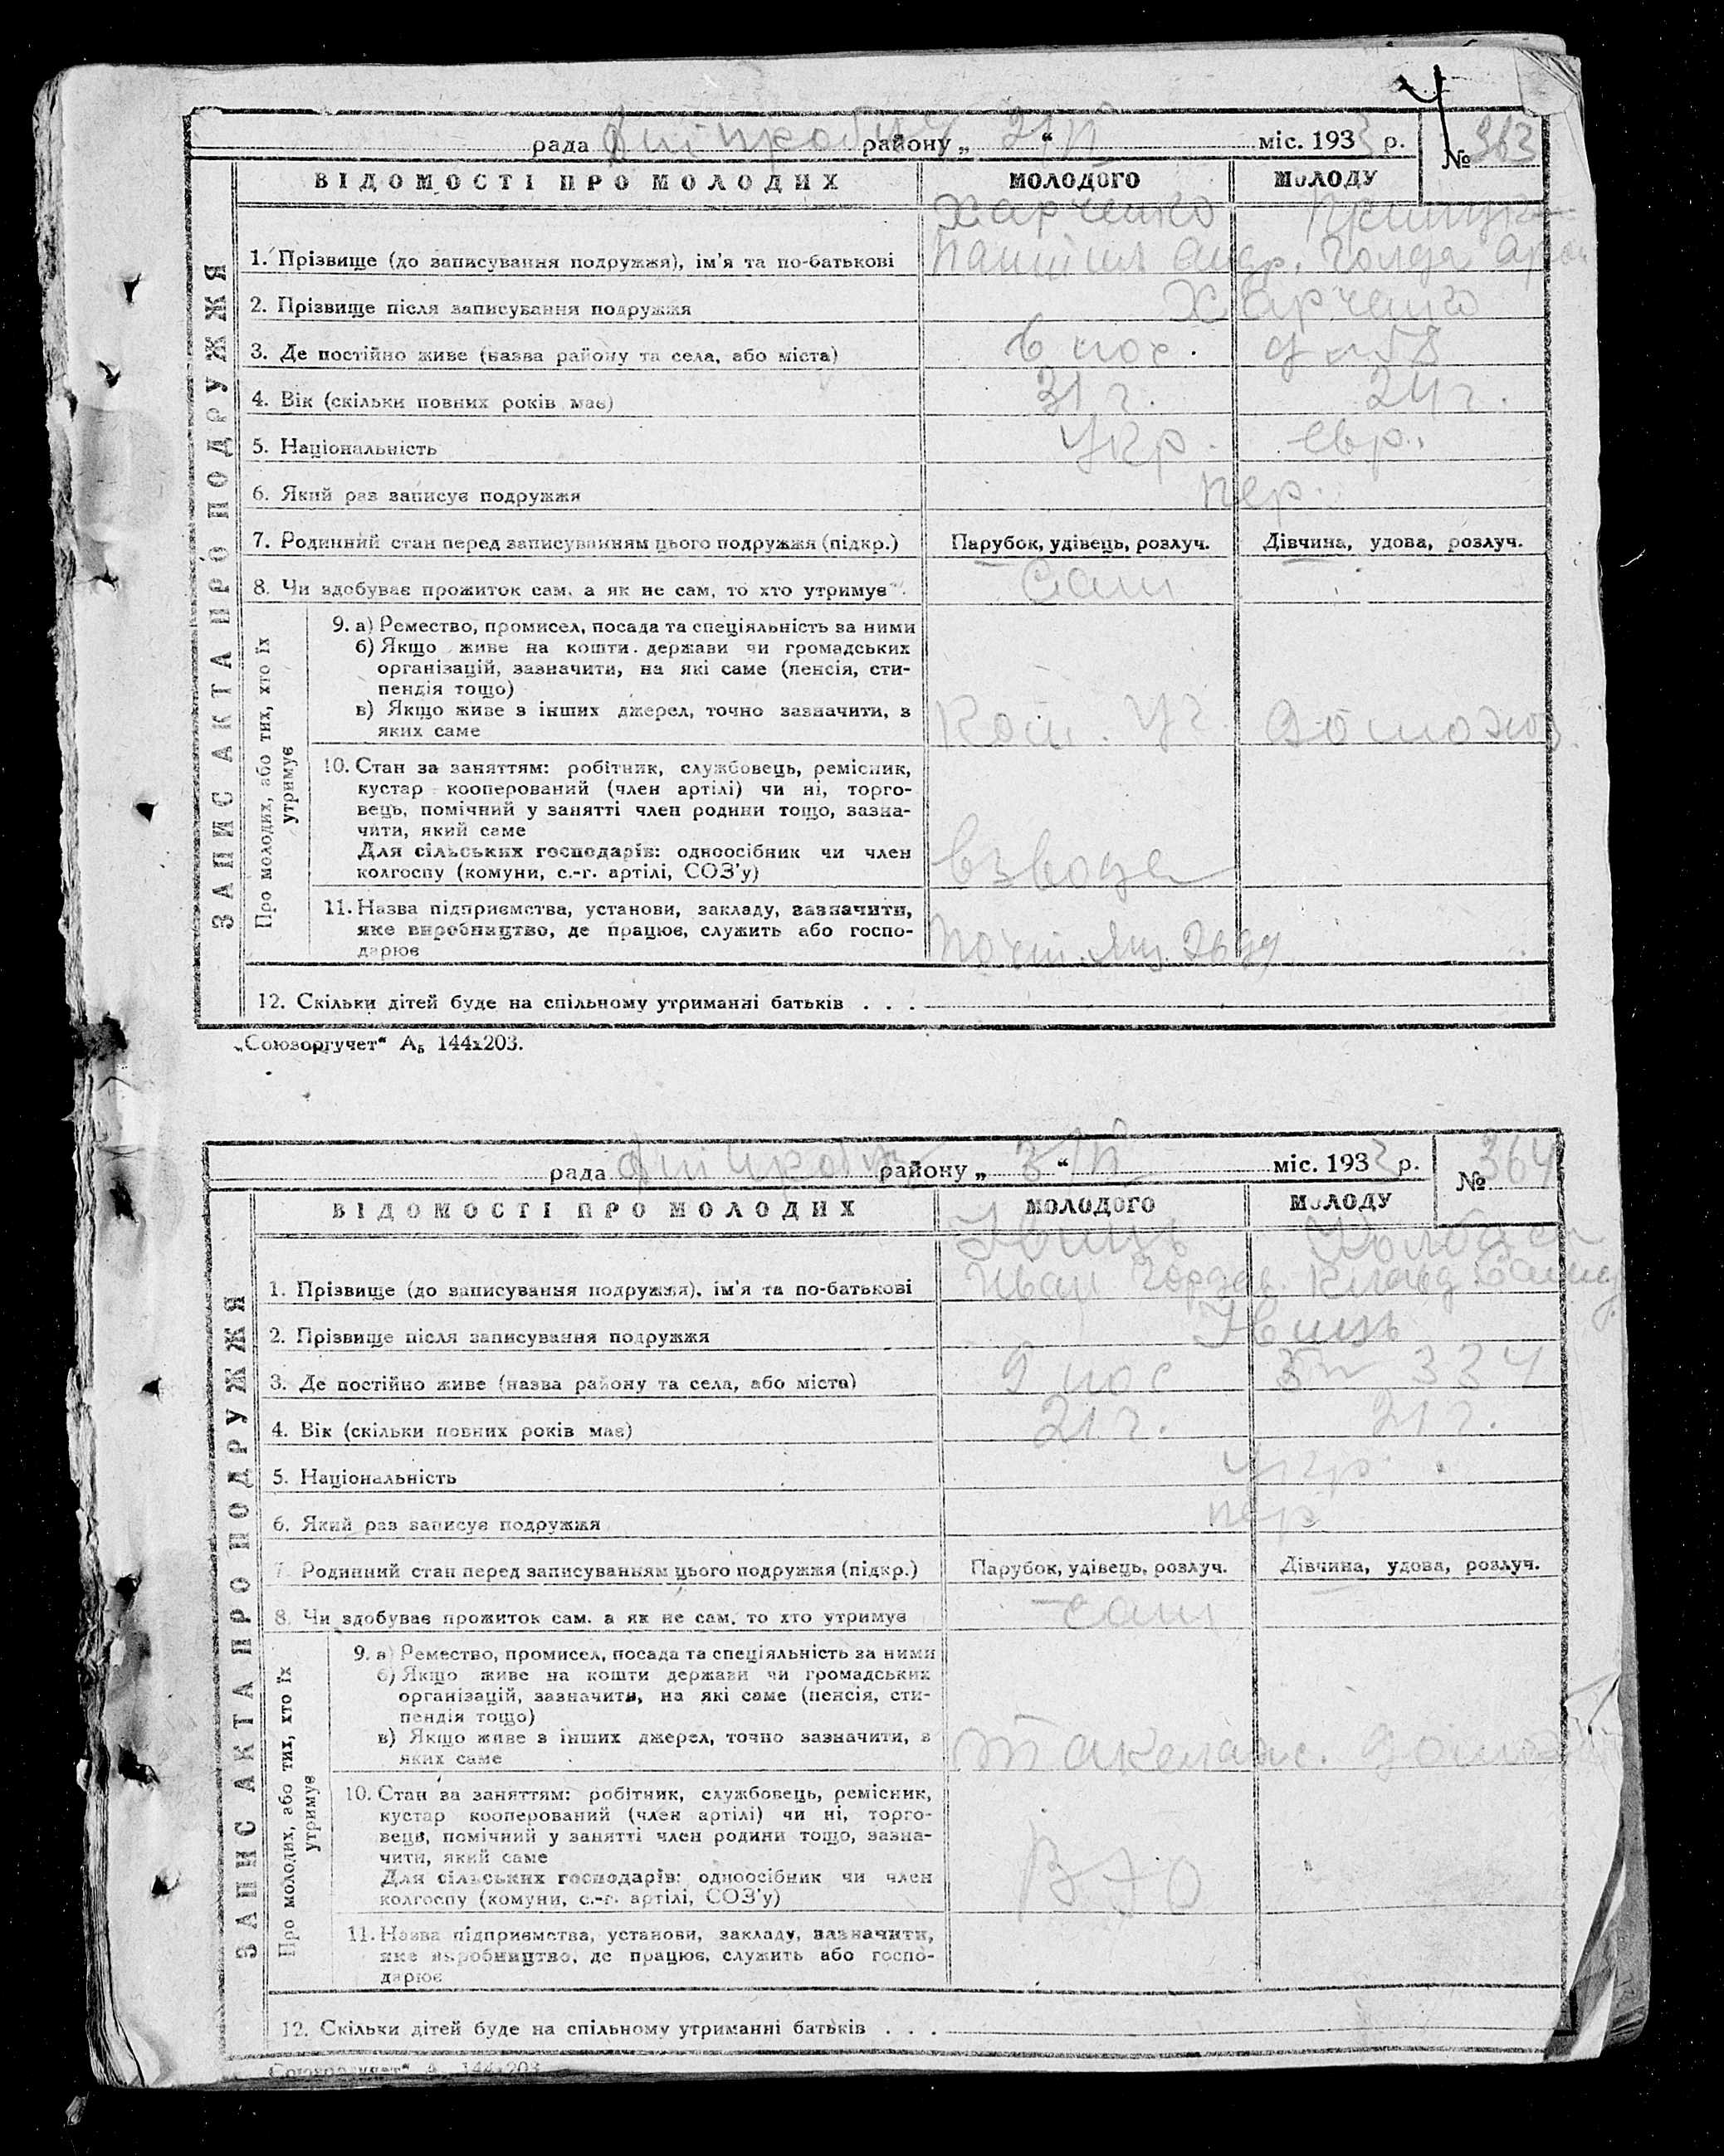 рада район у „ 2/IV “ міс. 1933 р. № 363
ЗАПИС АКТА ПРО ПОДРУЖЖЯ
ВІДОМОСТІ ПРО МОЛОДИХ МОЛОДОГО МОЛОДУ
Харченко
1. Прізвище (до записування подружжя), ім'я та по-батькові Андр. Голда Арон
2. Прізвище після записування подружжя Харченко
3. Де постійно живе (назва району та села, або міста) 6 пос.
4. Вік (скільки повних років має) 31 г. 24 г.
5. Національність Укр. евр.
6. Який раз записує подружжя пер.
7. Родинний стан перед записуванням цього подружжя (підкр.) Парубок, удівець, розлуч. Дівчина, удова, розлуч.
8. Чи здобуває прожиток сам, а як не сам, то хто утримує сам
Про молодих, або тих, хто їх утримує
9. а) Ремество, промисел, посада та спеціяльність за ними
б) Якщо живе на кошти держави чи громадських
організацій, зазначити, на які саме (пенсія, сти-
пендія тощо)
в) Якщо живе з інших джерел, точно зазначити, з
яких саме домохоз.
10. Стан за заняттям: робітник, службовець, ремісник,
кустар кооперований (член артілі) чи ні, торго-
вець, помічний у занятті член родини тощо, зазна-
чити, який саме
Для сільських господарів: одноосібник чи член
колгоспу (комуни, с.-г. артілі, СОЗ'у) взвода
11. Назва підприємства, установи, закладу, зазначити,
яке виробництво, де працює, служить або госпо-
дарює почт. ящ.
12. Скільки дітей буде на спільному утриманні батьків . . .
„Союзоргучет“ А₅ 144x203.
рада району „ 3/IV “ міс. 1933 р. № 364
ЗАПИС АКТА ПРО ПОДРУЖЖЯ
ВІДОМОСТІ ПРО МОЛОДИХ МОЛОДОГО МОЛОДУ
1. Прізвище (до записування подружжя), ім'я та по-батькові Иван Гордев. Клавд
2. Прізвище після записування подружжя
3. Де постійно живе (назва району та села, або міста) 9 пос 334
4. Вік (скільки повних років має) 21 г. 21 г.
5. Національність укр.
6. Який раз записує подружжя пер
7. Родинний стан перед записуванням цього подружжя (підкр.) Парубок, удівець, розлуч. Дівчина, удова, розлуч.
8. Чи здобуває прожиток сам, а як не сам, то хто утримує сам
Про молодих, або тих, хто їх утримує
9. а) Ремество, промисел, посада та спеціяльність за ними
б) Якщо живе на кошти держави чи громадських
організацій, зазначити, на які саме (пенсія, сти-
пендія тощо)
в) Якщо живе з інших джерел, точно зазначити, з
яких саме такелаж.
10. Стан за заняттям: робітник, службовець, ремісник,
кустар кооперований (член артілі) чи ні, торго-
вець, помічний у занятті член родини тощо, зазна-
чити, який саме
Для сільських господарів: одноосібник чи член
колгоспу (комуни, с.-г. артілі, СОЗ'у)
11. Назва підприємства, установи, закладу, зазначити,
яке виробництво, де працює, служить або госпо-
дарює
12. Скільки дітей буде на спільному утриманні батьків . . .
„Союзоргучет“ А₅ 144x203